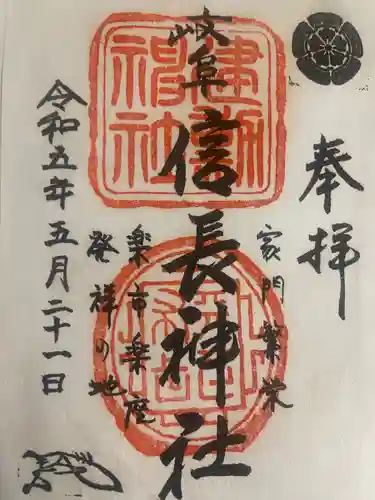 奉拝
家門繁栄
岐阜信長神社
楽市楽座
発祥の地
令和五年五月二十一日
建勲神社